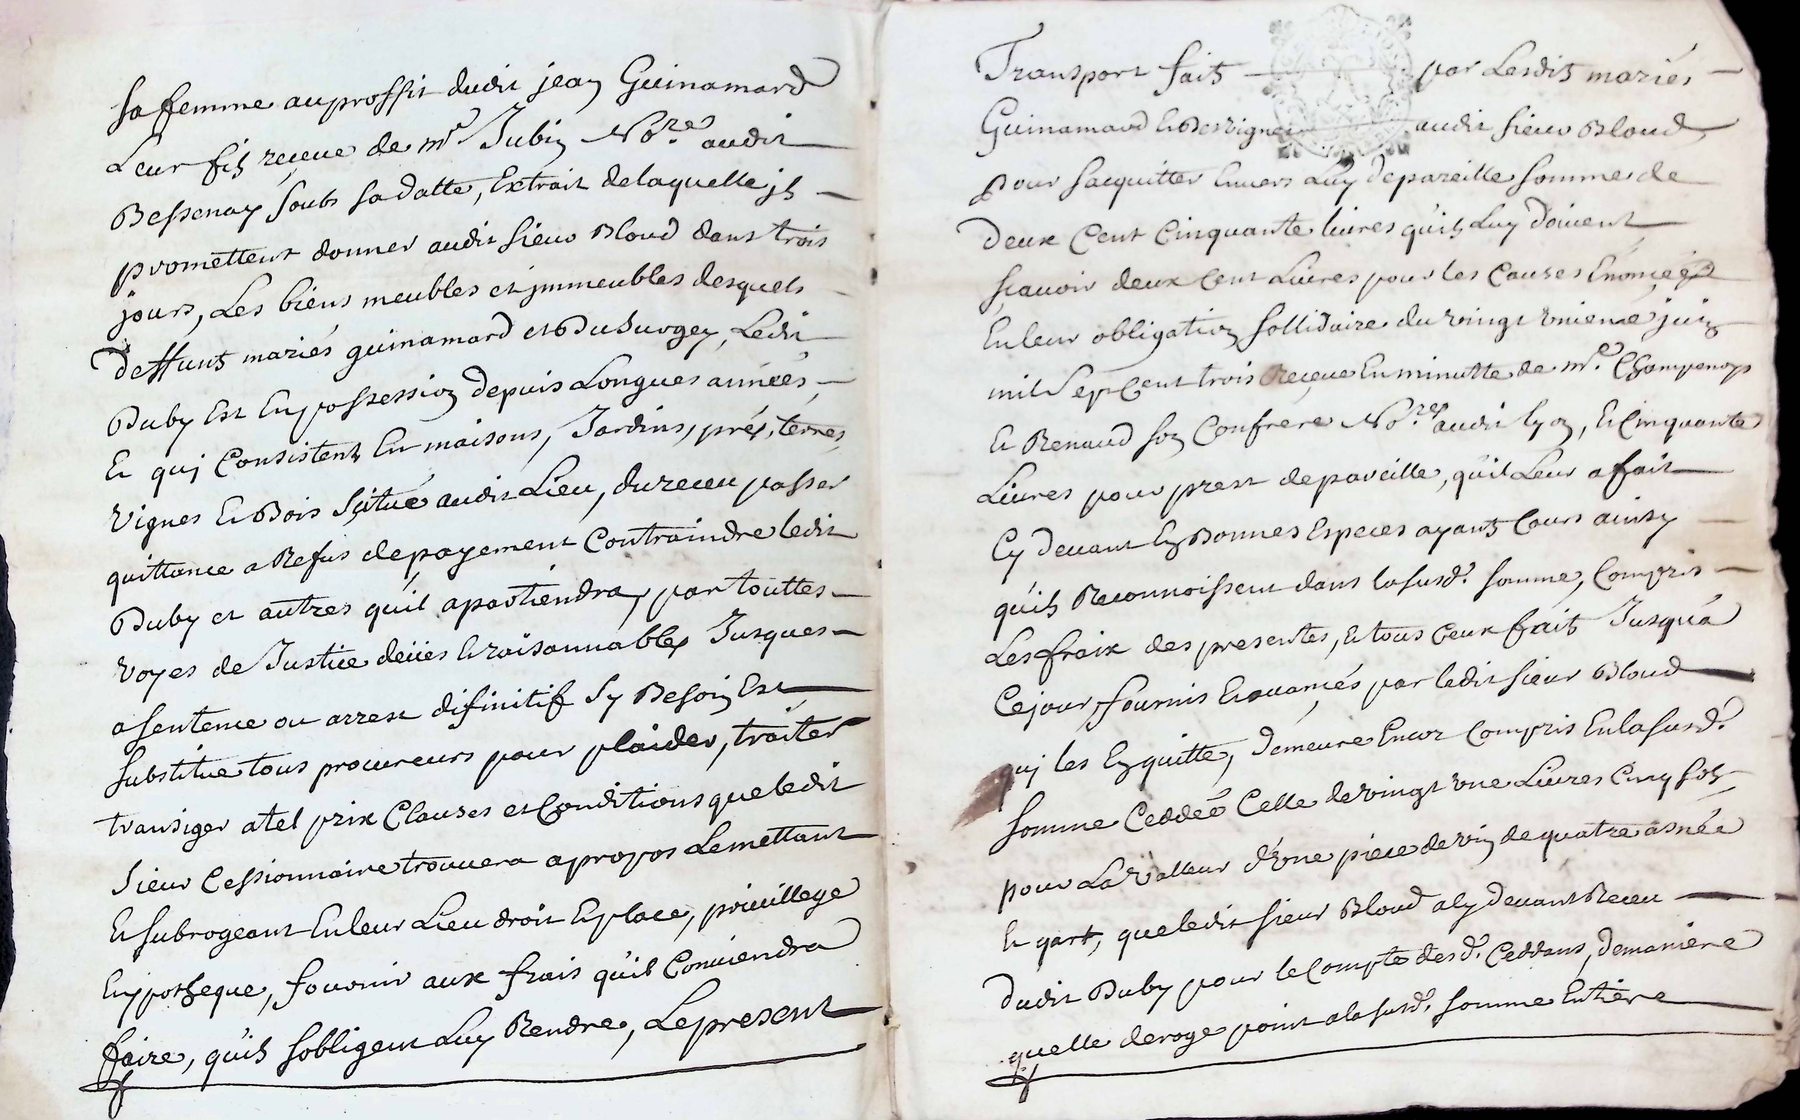 sa femme au proffit dudit jean Guinamard
Leur fils reçeue de mr Jubin Nore audit
Bessenay soubs sa datte, Extrait de laquelle jls
promettent donner audit sieur Bloud dans trois
jours, Les biens meubles et jmmeubles desquels
deffunts mariés guinamard et Dusurgey, Ledit
Duby Est En possession depuis Longues années,
Et quj Consistent En maisons, Jardins, prés, terres,
vignes Et Bois sçitué audit Lieu, du receu passer
quittance a Refus de payement Contraindre ledit
Duby et autres qu'il apartiendra, par touttes
voyes de Justice deües Et raisonnables Jusques
a sentence ou arrest difinitif sy Besoin Est
substitue tous procureurs pour plaider, traiter
transiger a tel prix Clauses et Conditions que ledit
sieur Cessionnaire trouvera apropos Le mettant
Et subrogeant En leur Lieu droit Et place, privillege
Enypotheque, fournir aux frais qu'il Conviendra
faire, qu'ils sobligent Luy Rendre, Le present
Transport fait par Lesdits mariés
Guinamard Et Desvignes audit sieur Bloud
pour sacquitter Envers Luy de pareille somme de
deux Cent Cinquante livres qu'ils Luy doivent
sçavoir deux Cent Livres pour les Causes Enoncées
En leur obligation sollidaire du vingt unieme juin
mil sept Cent trois Reçeue En minutte de mre Champenoys
Et Renaud son Confrere Nores audit lyon, Et Cinquante
Livres pour prest de pareille, qu'il Leur a fait
Cy devant En Bonnes Especes ayants Cours ainsy
qu'ils Reconnoissent dans la susd. somme, Compris
Les fraix des presentes, Et tous Ceux faits Jusqu'a
Ce jour, fournis Et avancés par ledit sieur Bloud
quj les En quitte, demeure Encor Compris En la susd.
somme Ceddée Celle de vingt une Livres Cinq sols
pour La valleur d'une piece de vin de quatre asnée
Et quart, que ledit sieur Bloud a Cy devant Receu
dudit Duby pour le Compte desd. Ceddans, de maniere
quelle deroge point a la susd. somme Entiere